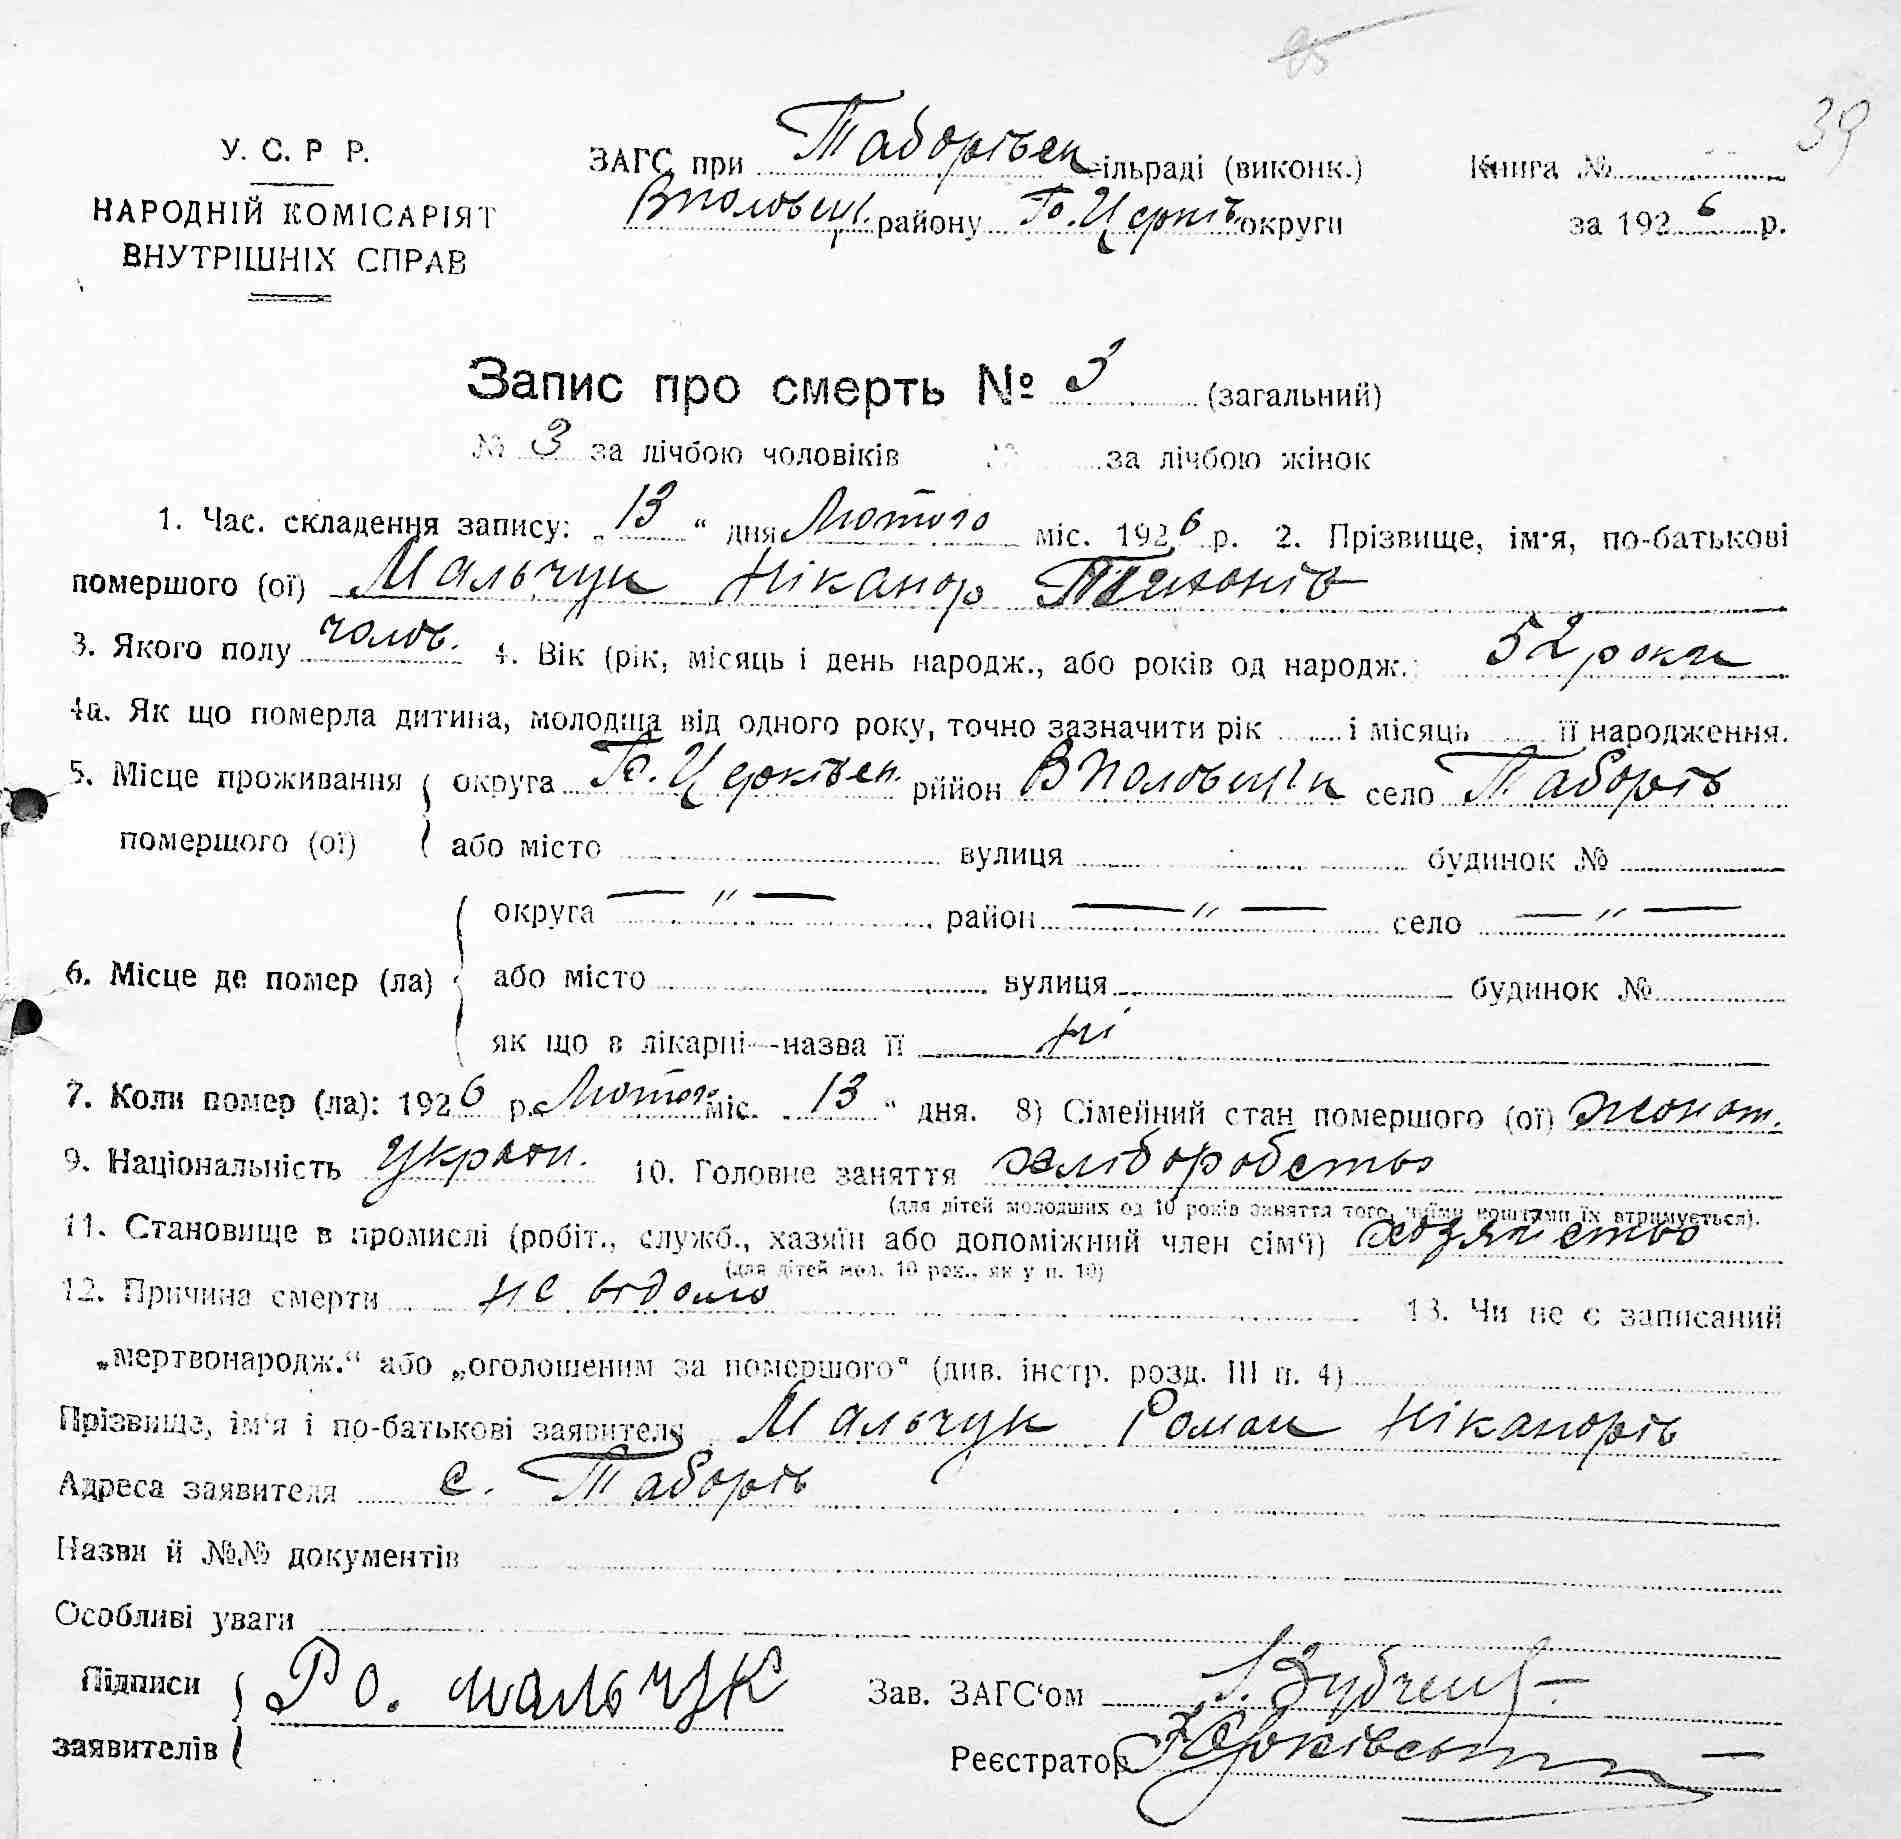 39
У. С. Р Р.
НАРОДНІЙ КОМІСАРІЯТ
ВНУТРІШНІХ СПРАВ
ЗАГС при Таборівськ сільраді (виконк.)
Вполовецьк. району Б. Церків. округи
Книга №
за 1926 р.
Запис про смерть № 3 (загальний)
№ 3 за лічбою чоловіків № за лічбою жінок
1. Час. складення запису: „13“ дня Лютого міс. 1926 р. 2. Прізвище, ім'я, по-батькові
помершого (ої) Мальчук Ніканор Тихонів
3. Якого полу чолов. 4. Вік (рік, місяць і день народж., або років од народж. 52 роки
4а. Як що померла дитина, молодша від одного року, точно зазначити рік і місяць її народження.
5. Місце проживання помершого (ої) округа Б. Церківсп. рййон Вполовецьк село Таборів
або місто вулиця будинок №
6. Місце де помер (ла) округа — „ — район — „ — село — „ —
або місто вулиця будинок №
як що в лікарні—назва її ні
7. Коли помер (ла): 1926 р. Лютог міс. 13 “ дня. 8) Сімейний стан помершого (ої) жонат.
9. Національність Україн. 10. Головне заняття хліборобство
(для дітей молодших од 10 років заняття того, чиїми коштами їх втримується).
11. Становище в промислі (робіт., служб., хазяїн або допоміжний член сім'ї) хозяйство
(для дітей мол. 10 рок., як у п. 10)
12. Причина смерти не відомо 13. Чи не є записаний
„мертвонародж.“ або „оголошеним за помершого“ (див. інстр. розд. III п. 4)
Прізвище, ім'я і по-батькові заявителя Мальчук Роман Ніканорів
Адреса заявителя с. Таборів
Назви й №№ документів
Особливі уваги
Підписи заявителів Ро. мальчук
Зав. ЗАГС'ом
Реєстратор